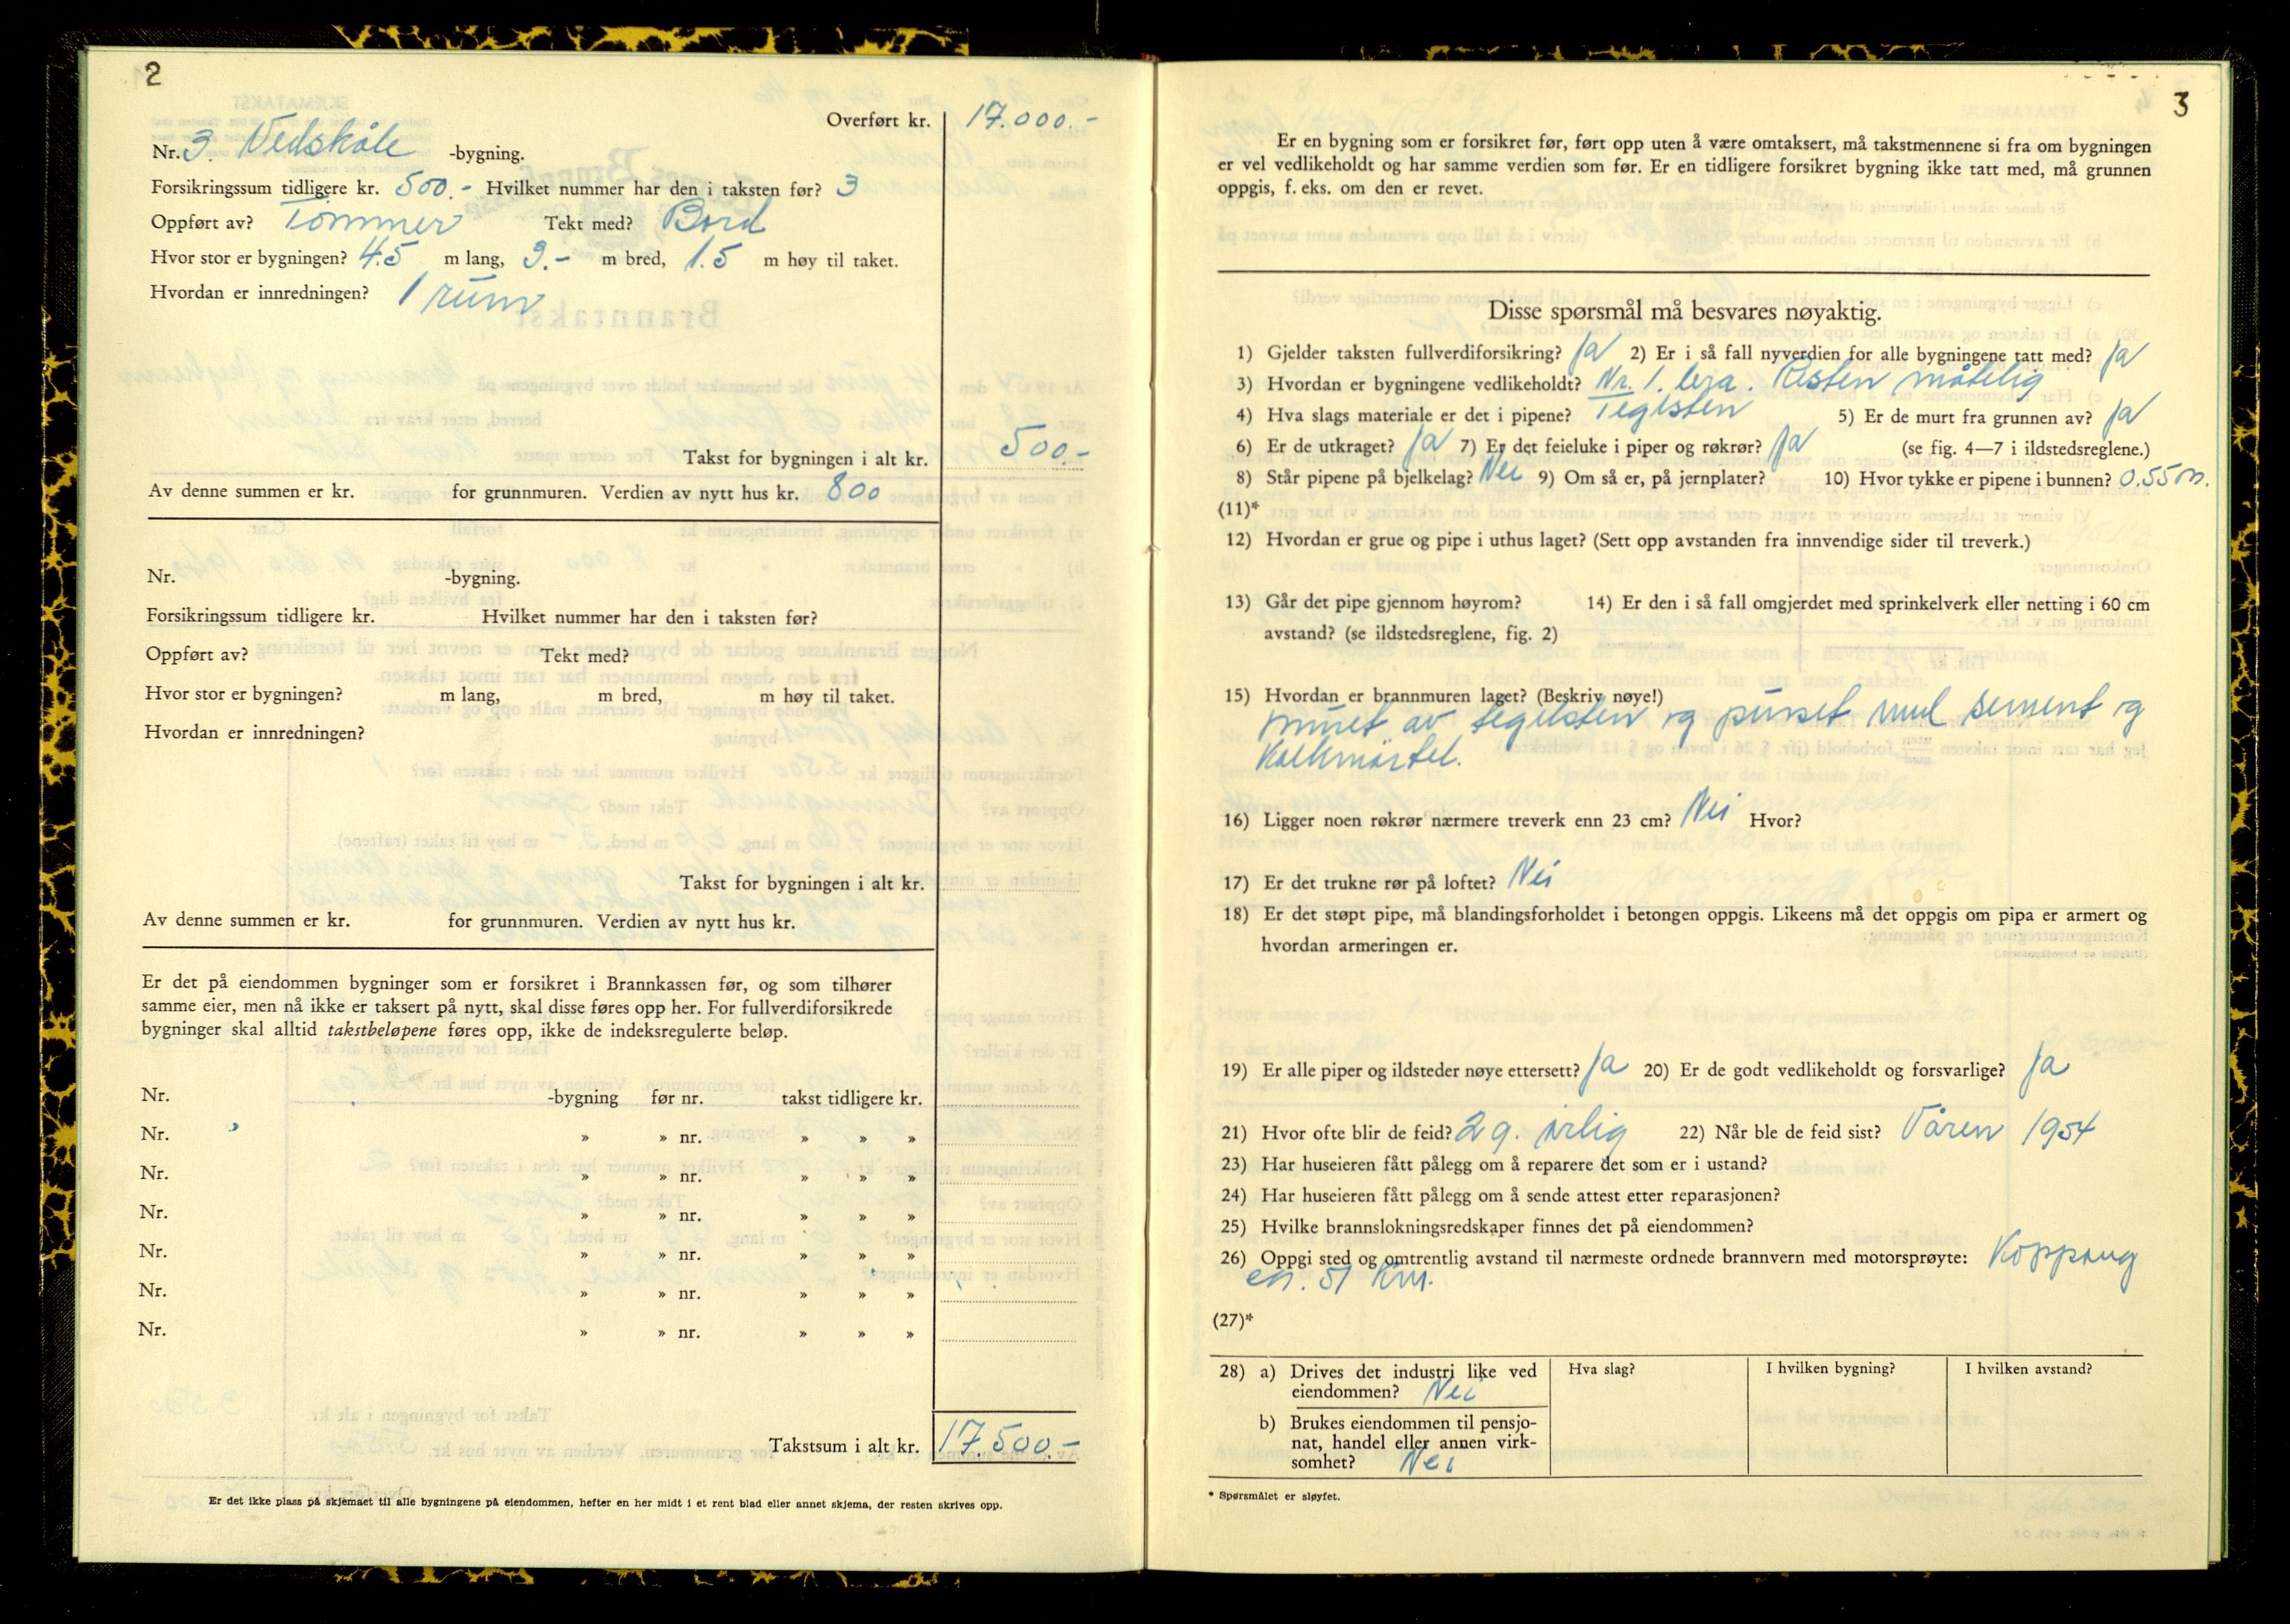 2
Overført kr. 17.000.-
Nr. 3. Vedskåle -bygning.
Forsikringssum tidligere kr. 500.- Hvilket nummer har den i taksten før? 3
Oppført av? Tømmer Tekt med? Bord
Hvor stor er bygningen? 4.5 m lang, 3.- m bred, 1.5 m høy til taket.
Hvordan er innredningen? 1 rum
Takst for bygningen i alt kr. 500.-
Av denne summen er kr. for grunnmuren. Verdien av nytt hus kr. 800
Nr. -bygning.
Forsikringssum tidligere kr. Hvilket nummer har den i taksten før?
Oppført av? Tekt med?
Hvor stor er bygningen? m lang, m bred, m høy til taket.
Hvordan er innredningen?
Takst for bygningen i alt kr.
Av denne summen er kr. for grunnmuren. Verdien av nytt hus kr.
Er det på eiendommen bygninger som er forsikret i Brannkassen før, og som tilhører
samme eier, men nå ikke er taksert på nytt, skal disse føres opp her. For fullverdiforsikrede
bygninger skal alltid takstbeløpene føres opp, ikke de indeksregulerte beløp.
Nr. -bygning før nr. takst tidligere kr.
Nr. » » nr. » » »
Nr. » » nr. » » »
Nr. » » nr. » » »
Nr. » » nr. » » »
Nr. » » nr. » » »
Nr. » » nr. » » »
Takstsum i alt kr. 17.500.-
Er det ikke plass på skjemaet til alle bygningene på eiendommen, hefter en her midt i et rent blad eller annet skjema, der resten skrives opp.
3
Er en bygning som er forsikret før, ført opp uten å være omtaksert, må takstmennene si fra om bygningen
er vel vedlikeholdt og har samme verdien som før. Er en tidligere forsikret bygning ikke tatt med, må grunnen
oppgis, f. eks. om den er revet.
Disse spørsmål må besvares nøyaktig.
1) Gjelder taksten fullverdiforsikring? Ja 2) Er i så fall nyverdien for alle bygningene tatt med? Ja
3) Hvordan er bygningene vedlikeholdt? Nr. 1. bra. Resten måtelig
4) Hva slags materiale er det i pipene? Teglsten 5) Er de murt fra grunnen av? Ja
6) Er de utkraget? Ja 7) Er det feieluke i piper og røkrør? Ja (se fig. 4—7 i ildstedsreglene.)
8) Står pipene på bjelkelag? Nei 9) Om så er, på jernplater? 10) Hvor tykke er pipene i bunnen? 0.55 m.
(11)*
12) Hvordan er grue og pipe i uthus laget? (Sett opp avstanden fra innvendige sider til treverk.)
13) Går det pipe gjennom høyrom? 14) Er den i så fall omgjerdet med sprinkelverk eller netting i 60 cm
avstand? (se ildstedsreglene, fig. 2)
15) Hvordan er brannmuren laget? (Beskriv nøye!)
muret av teglsten og pusset med sement og
kalkmørtel.
16) Ligger noen røkrør nærmere treverk enn 23 cm? Nei Hvor?
17) Er det trukne rør på loftet? Nei
18) Er det støpt pipe, må blandingsforholdet i betongen oppgis. Likeens må det oppgis om pipa er armert og
hvordan armeringen er.
19) Er alle piper og ildsteder nøye ettersett? Ja 20) Er de godt vedlikeholdt og forsvarlige? Ja
21) Hvor ofte blir de feid? 2 g. årlig 22) Når ble de feid sist? Våren 1954
23) Har huseieren fått pålegg om å reparere det som er i ustand?
24) Har huseieren fått pålegg om å sende attest etter reparasjonen?
25) Hvilke brannslokningsredskaper finnes det på eiendommen?
26) Oppgi sted og omtrentlig avstand til nærmeste ordnede brannvern med motorsprøyte: Koppang
51 Km.
(27)*
28) a) Drives det industri like ved Hva slag? I hvilken bygning? I hvilken avstand?
eiendommen? Nei
b) Brukes eiendommen til pensjo-
nat, handel eller annen virk-
somhet? Nei
* Spørsmålet er sløyfet.